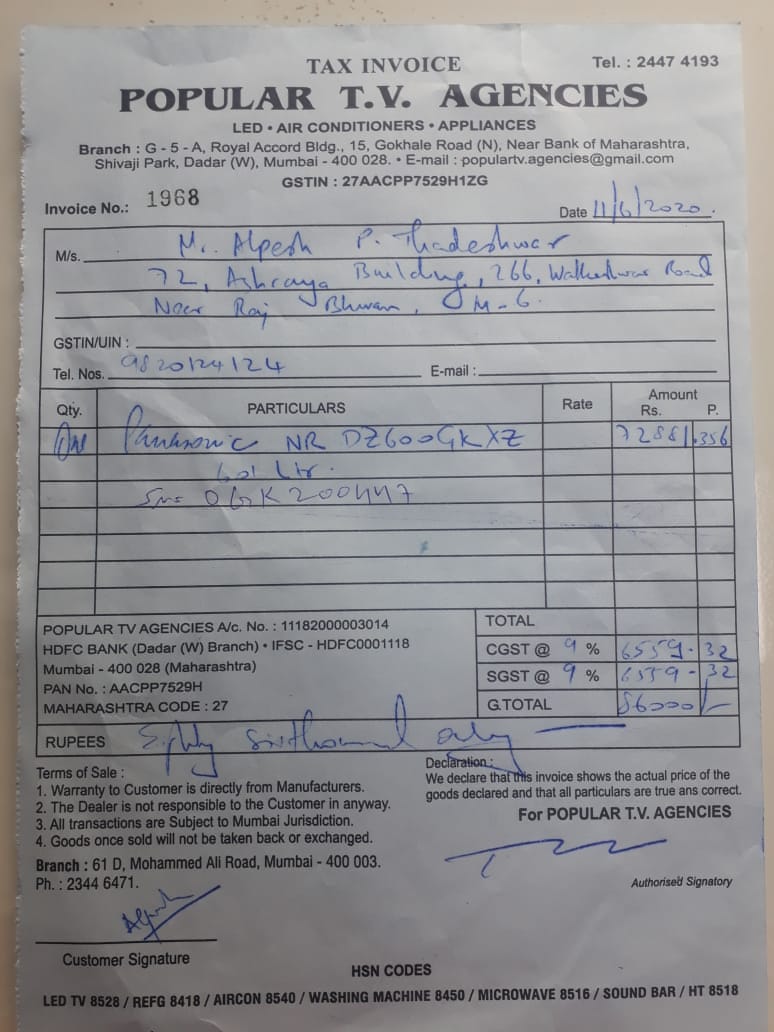 TAX INVOICE
Tel. : 2447 4193
POPULAR T.V. AGENCIES
LED • AIR CONDITIONERS • APPLIANCES
Branch : G - 5 - A, Royal Accord Bldg., 15, Gokhale Road (N), Near Bank of Maharashtra,
Shivaji Park, Dadar (W), Mumbai - 400 028. • E-mail : populartv.agencies@gmail.com
GSTIN : 27AACPP7529H1ZG
Invoice No.: 1968
Date 11/6/2020.
M/s. Mr. Alpesh P. Thadeshwar
72, Ashraya Building, 266, Walkeshwar Road
Near Raj Bhwan, M-6.
GSTIN/UIN :
Tel. Nos. 9820124124 E-mail :
Qty. PARTICULARS Rate Amount Rs. P.
One Panasonic NR DZ600GKXZ 72881.356
601 Ltr.
POPULAR TV AGENCIES A/c. No. : 11182000003014
HDFC BANK (Dadar (W) Branch) • IFSC - HDFC0001118
Mumbai - 400 028 (Maharashtra)
PAN No. : AACPP7529H
MAHARASHTRA CODE : 27
TOTAL
CGST @ 9 % 6559-32
SGST @ 9 % 6559-32
G.TOTAL 86000/-
RUPEES Eighty Six thousand only
Terms of Sale :
1. Warranty to Customer is directly from Manufacturers.
2. The Dealer is not responsible to the Customer in anyway.
3. All transactions are Subject to Mumbai Jurisdiction.
4. Goods once sold will not be taken back or exchanged.
Declaration :
We declare that this invoice shows the actual price of the
goods declared and that all particulars are true ans correct.
For POPULAR T.V. AGENCIES
Branch : 61 D, Mohammed Ali Road, Mumbai - 400 003.
Ph. : 2344 6471.
Authorised Signatory
Alpesh
Customer Signature
HSN CODES
LED TV 8528 / REFG 8418 / AIRCON 8540 / WASHING MACHINE 8450 / MICROWAVE 8516 / SOUND BAR / HT 8518